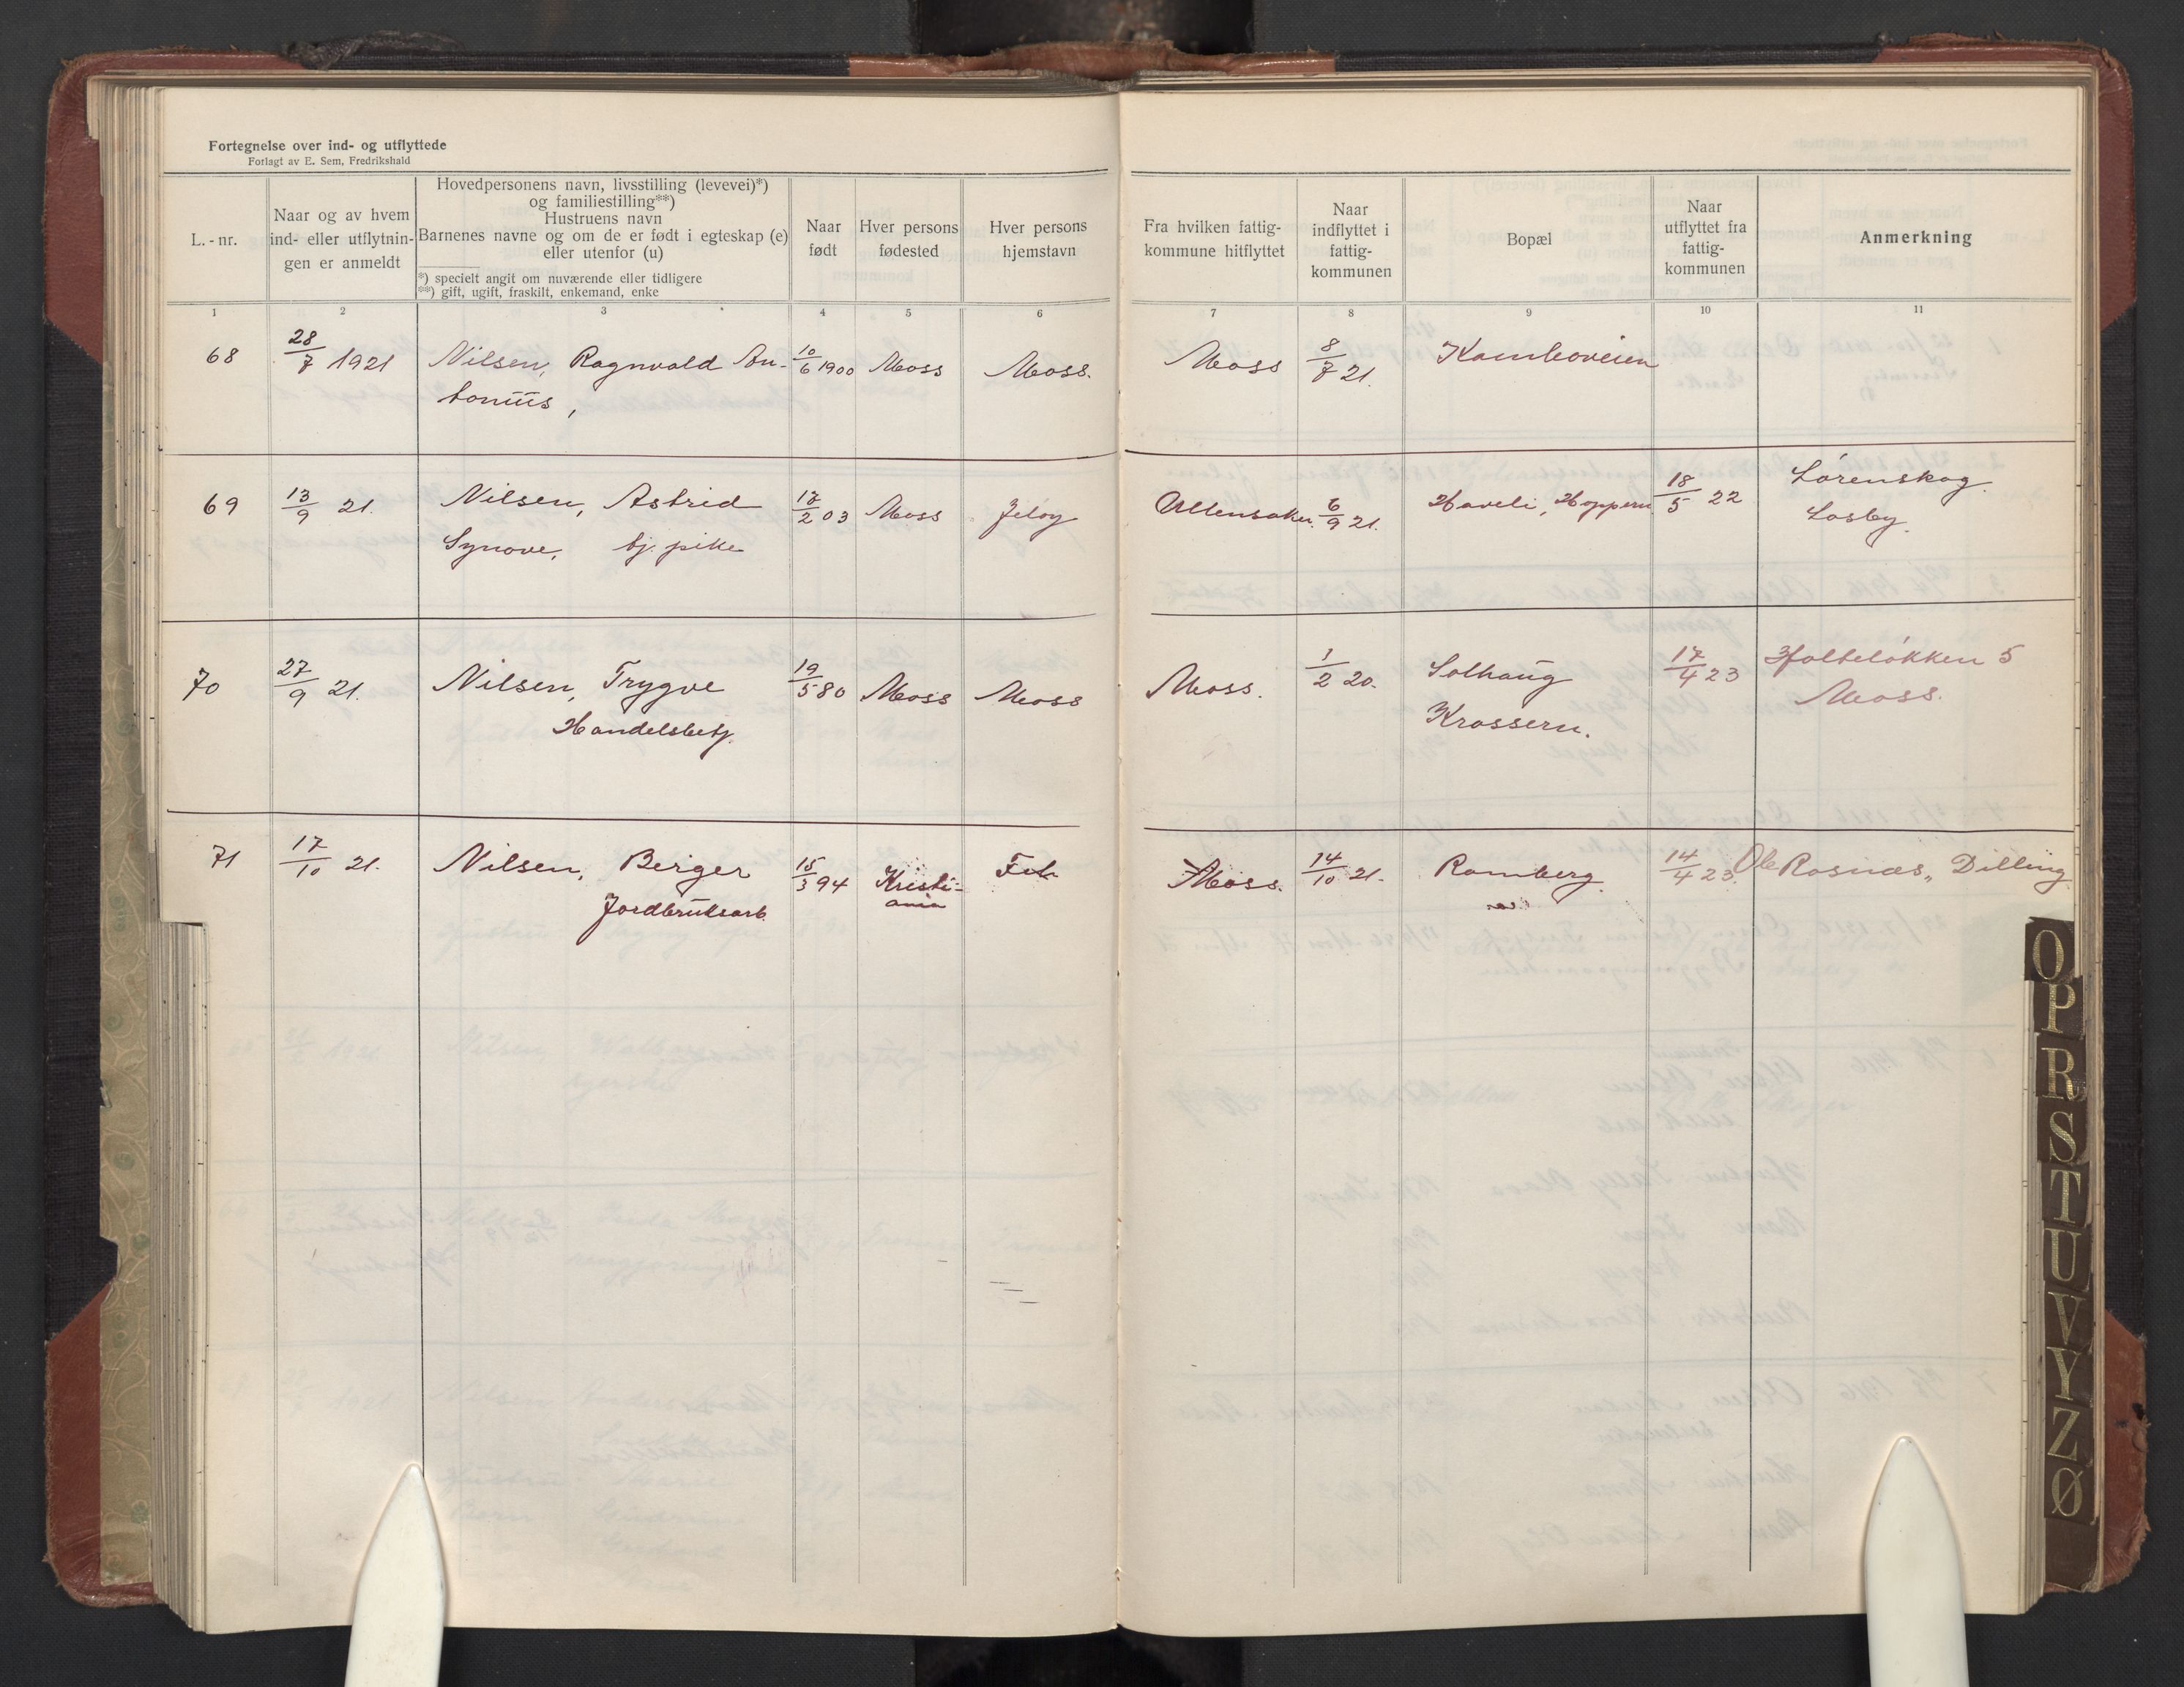 Fortegnelse over ind- og utflyttede
Forlagt av E. Sem, Fredrikshald
L.-nr.
Naar og av hvem
ind- eller utflytnin-
gen er anmeldt
Hovedpersonens navn, livsstilling (levevei)*)
og familiestilling**)
Hustruens navn
Barnenes navne og om de er født i egteskap (e)
eller utenfor (u)
*) specielt angit om nuværende eller tidligere
**) gift, ugift, fraskilt, enkemand, enke
Naar
født
Hver persons
fødested
Hver persons
hjemstavn
Fra hvilken fattig-
kommune hitflyttet
Naar
indflyttet i
fattig-
kommunen
Bopæl
Naar
utflyttet fra
fattig-
kommunen
Anmerkning
1 2 3 4 5 6 7 8 9 10 11
68 28/7 1921 Nilsen, Ragnvald An- 10/6 1900 Moss Moss. Moss 8/7 21. Kamboveien
tonius,
69 13/9 21. Nilsen, Astrid 17/2 03 Moss Jeløy Ullensaker. 6/9 21. Haveli, Hoppern 18/5 22 Lørenskog.
Synove, tj. pike Losby.
70 27/9 21. Nilsen, Trygve 19/5 80 Moss Moss Moss. 1/2 20. Solhaug 17/4 23 Holteløkken 5
Handelsbetj. Krossern. Moss.
71 17/10 21. Nilsen, Berger 15/3 94 Kristi- Moss. 14/10 21. Ramberg. 14/4 23 Ole Rosnæs, Dilling
Jordbruksarb. ania
O
P
R
S
T
U
V
Y
Z
Ø